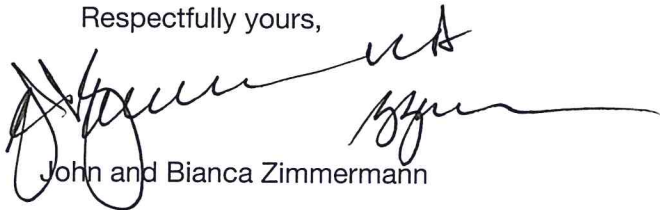 Respectfully yours,
John and Bianca Zimmermann